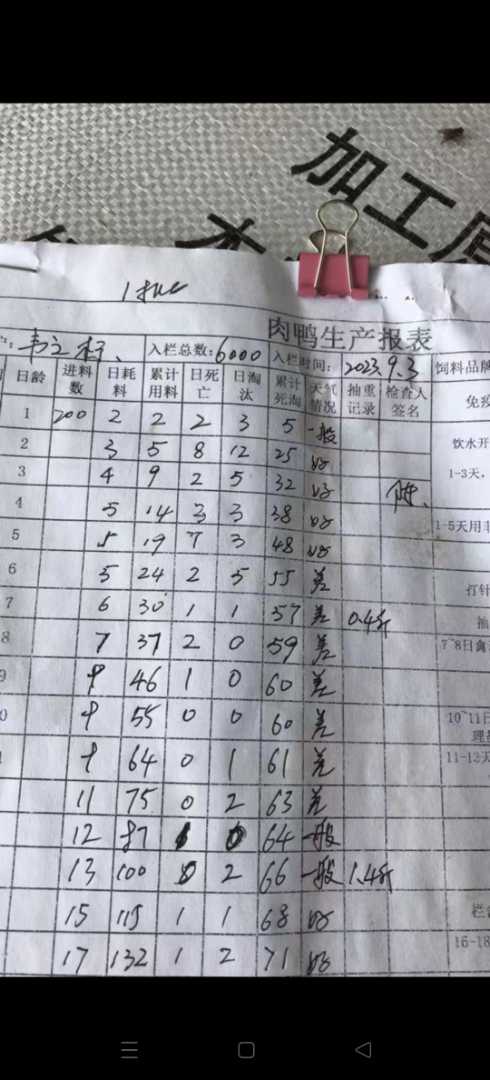 加工厂
1批
肉鸭生产报表
入栏总数:6000 入栏时间:2023.9.3 饲料品牌
日龄 进料数 日耗料 累计用料 日死亡 日淘汰 累计死淘 天气情况 抽重记录 检查人签名 免疫
1 200 2 2 2 3 5 一般
饮水开
2 3 5 8 12 25 好
3 4 9 2 5 32 好 1-3天,
4 5 14 3 3 38 好
1-5天用
5 5 19 7 3 48 好
6 5 24 2 5 55 差 打针
7 6 30 1 1 57 差 0.4斤 抽
8 7 37 2 0 59 差 7~8日禽
9 9 46 1 0 60 差
0 9 55 0 0 60 差 10~11日
9 64 0 1 61 差 11-12天
11 75 0 2 63 差
12 87 0 64 一般
13 100 2 66 一般 1.4斤
15 115 1 1 68 好 栏舍
17 132 1 2 71 好 16-18